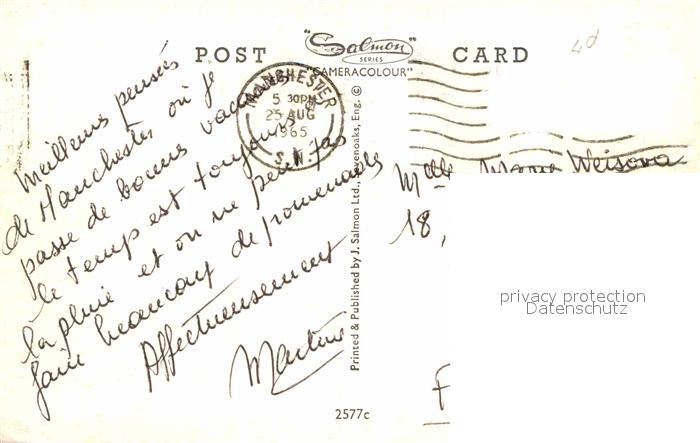 POST "Salmon" CARD
SERIES
"CAMERACOLOUR"
4d
MANCHESTER
5 30PM
25 AUG
1965
Meilleures pensées
de Manchester où je
passe de bonnes vacances
le temps est toujours à
la pluie et on ne peut pas
faire beaucoup de promenades
Affectueusement
Martine
Printed & Published by J. Salmon Ltd., Sevenoaks, Eng. ©
Melle Weisova
18,
F
privacy protection
Datenschutz
2577c